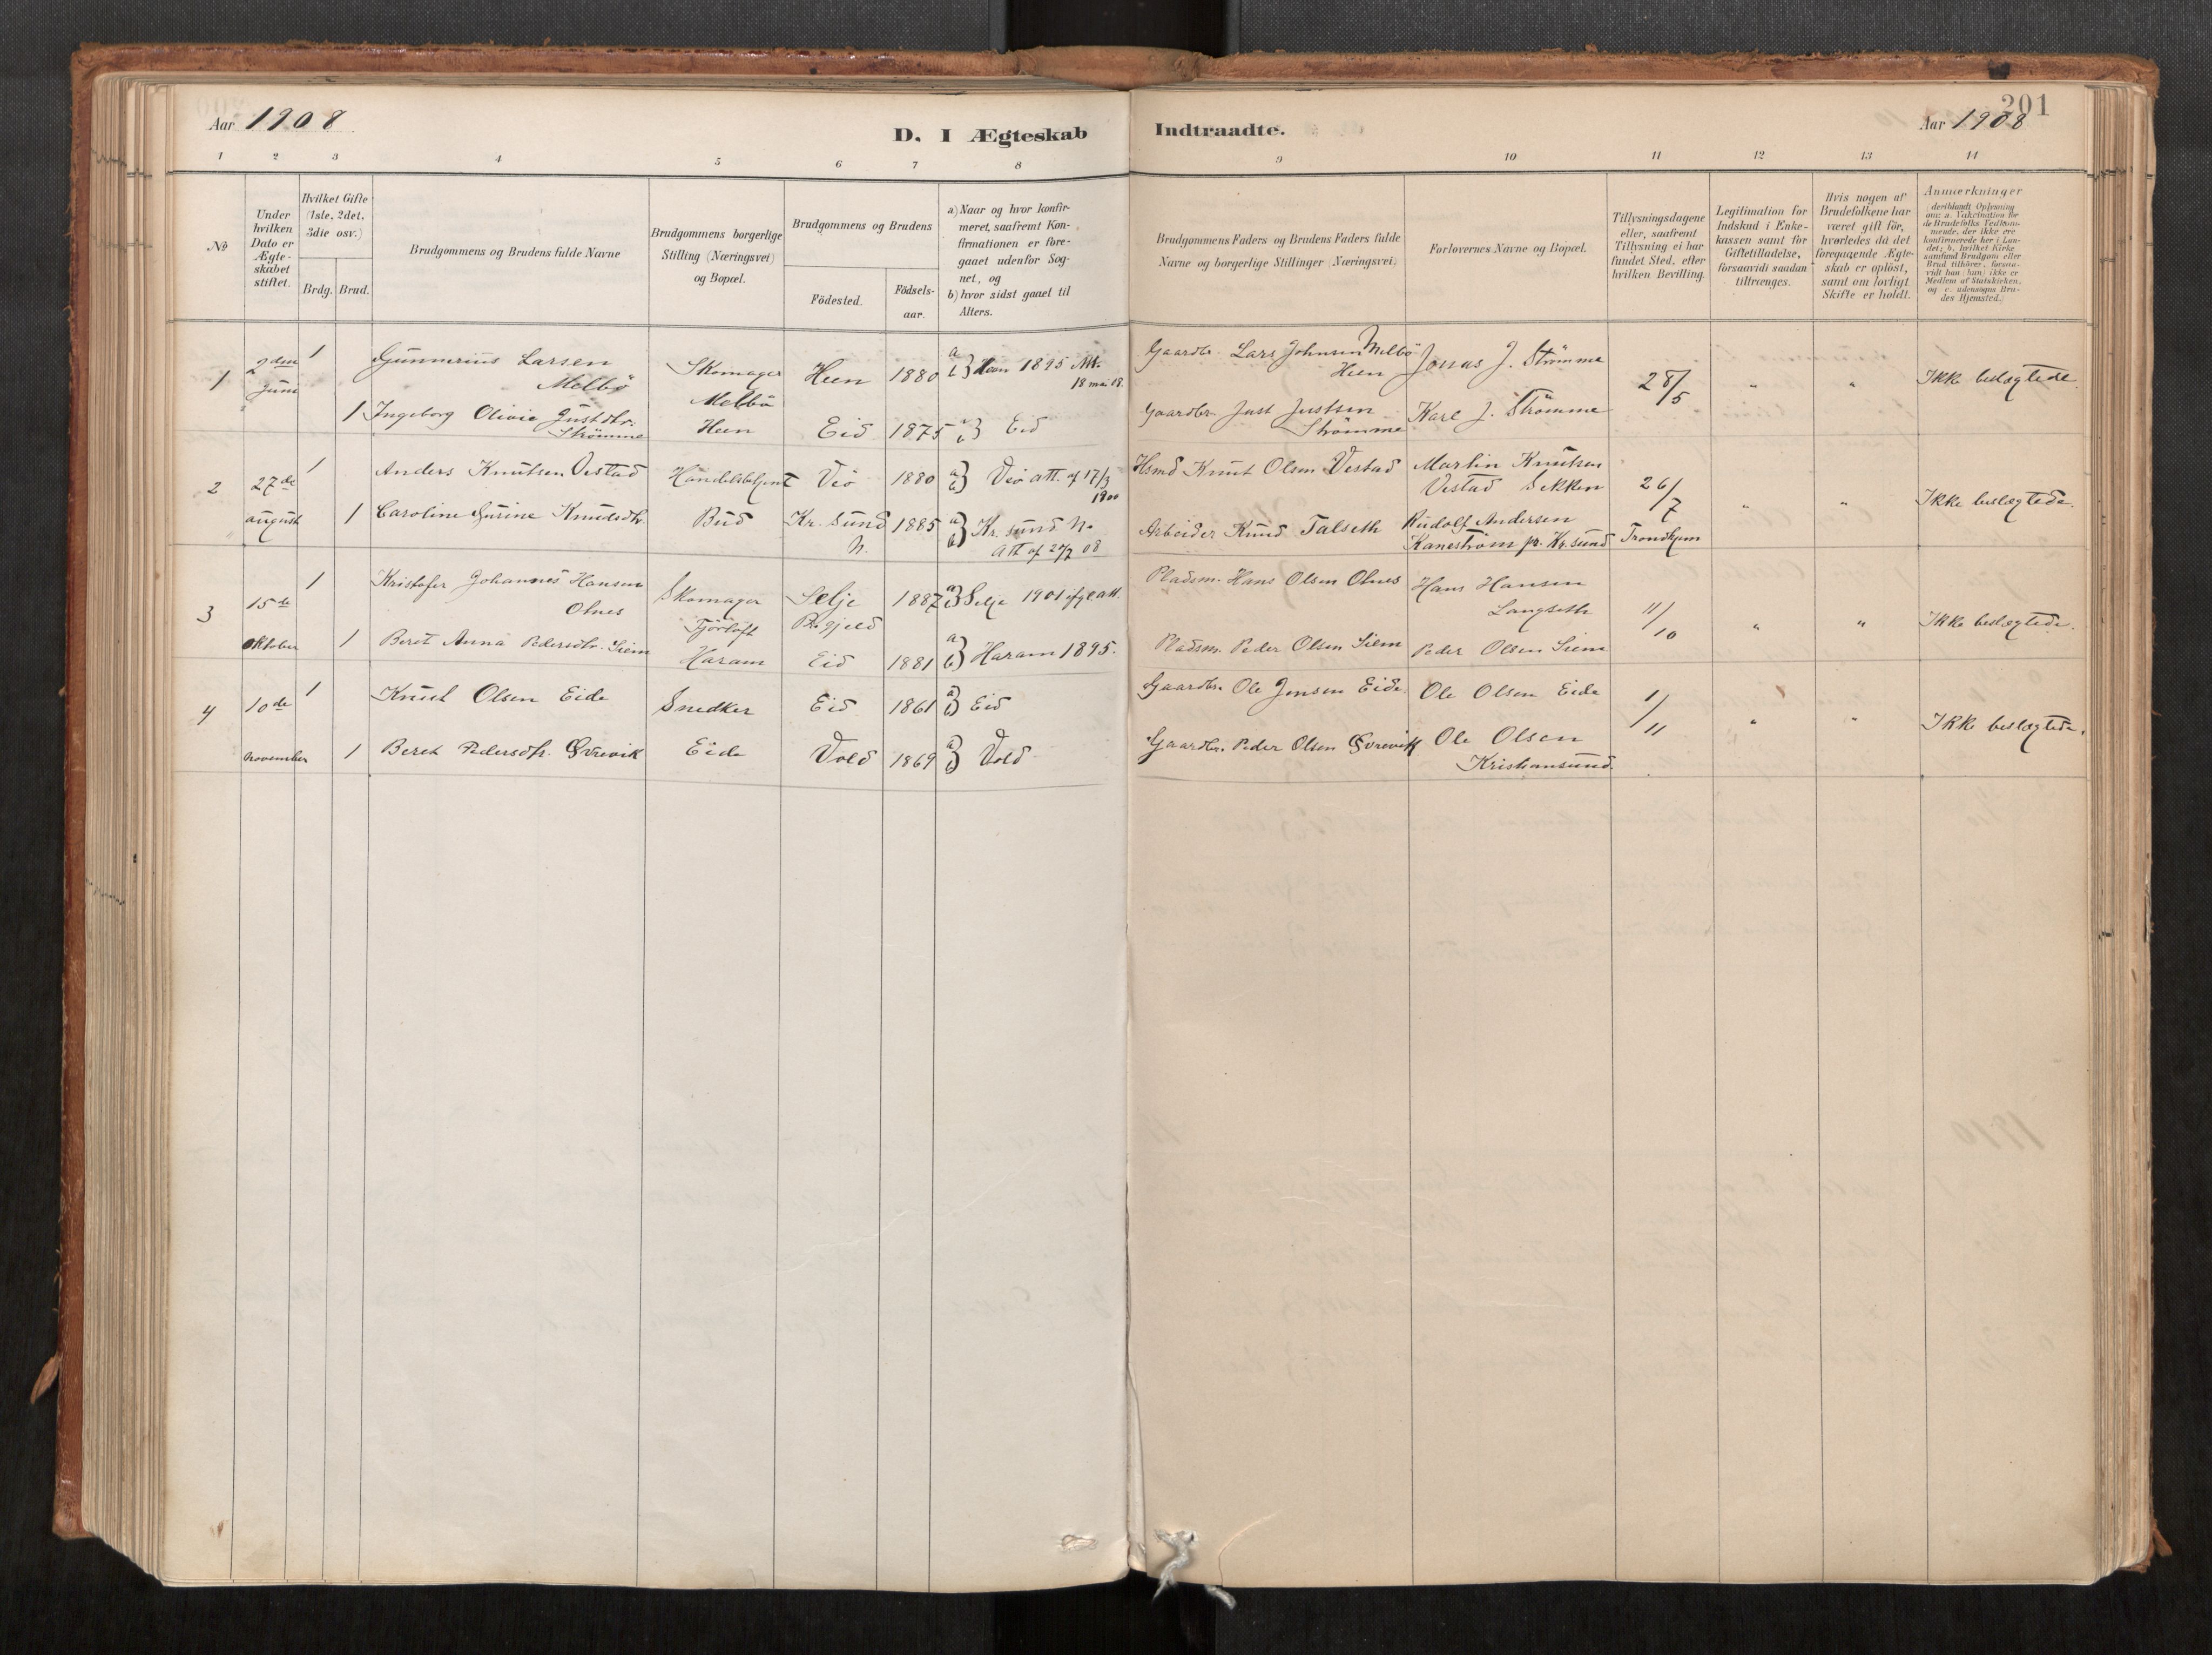 Aar 1908
D. I Ægteskab
1 2 3 4 5 6 7 8
№
Under hvilken Dato er Ægteskabet stiftet.
Hvilket Gifte (1ste, 2det, 3die osv.)
Brdg. Brud.
Brudgommens og Brudens fulde Navne
Brudgommens borgerlige Stilling (Næringsvei) og Bopæl.
Brudgommens og Brudens
Födested.
Födsels-aar.
a) Naar og hvor konfir-
meret, saafremt Kon-
firmationen er fore-
gaaet udenfor Sog-
net, og
b) hvor sidst gaaet til
Alters.
1 2den Juni 1 Gunnerius Larsen Melbö Skomager Melbö Heen 1880 a b) Heen 1895 Att. 18 mai 08.
1 Ingeborg Olivie Justdtr. Strömme Heen Eid 1875 a b) Eid
2 27de august 1 Anders Knutsen Vestad Handelsbetjent Veö 1880 a b) Veö att. af 17/3 1900
1 Caroline Gurine Knudsdtr. Bud Kr. sund N. 1885 a b) Kr. sund N. Att af 20/7 08
3 15de Oktober 1 Kristofer Johannes Hansen Olnes Skomager Fjörtoft Selje Pr.gjeld 1887 a b) Selje 1901 ifg att.
1 Beret Anna Pedersdtr. Siem Haram Eid 1881 a b) Haram 1895.
4 10de november 1 Knut Olsen Eide Snedker Eid 1861 a b) Eid
1 Beret Pedersdtr. Övrevik Eide Vold 1869 a b) Vold
201
Indtraadte.
Aar 1908
9 10 11 12 13 14
Brudgommens Faders og Brudens Faders fulde
Navne og borgerlige Stillinger (Næringsvei)
Forlovernes Navne og Bopæl.
Tillysningsdagene
eller, saafremt
Tillysning ei har
fundet Sted, efter
hvilken Bevilling.
Legitimation for
Indskud i Enke-
kassen samt for
Giftetilladelse,
forsaavidt saadan
tiltrænges.
Hvis nogen af
Brudefolkene har
været gift för,
hvorledes da det
foregaaende Ægte-
skab er oplöst,
samt om lovligt
Skifte er holdt.
Anmærkninger
(deriblandt Oplysning
om: a. Vakcination for
de Brudefolks Vedkom-
mende, der ikke ere
konfirmerede her i Lan-
det; b. hvilket Kirke-
samfund Brudgom eller
Brud tilhörer, forsaa-
vidt han (hun) ikke er
Medlem af Statskirken,
og c. udensogns Bru-
des Hjemsted.)
Gaardbr. Lars Johnsen Melbö Heen Jonas J. Strömme 28/5 " " Ikke beslægtede.
Gaardbr. Just Justsen Strömme Karl J. Strömme
Hsmd Knut Olsen Vestad Martin Knutsen Vestad Sekken 26/7 " " Ikke beslægtede.
Arbeider Knud Talseth Rudolf Andersen Kaneström pr. Kr.sund Trondhjem
Pladsm. Hans Olsen Olnes Hans Hansen Langseth 11/10 " " Ikke beslægtede.
Pladsm. Peder Olsen Siem Peder Olsen Siem
Gaardbr. Ole Jensen Eide Ole Olsen Eide 1/11 " " Ikke beslægtede.
Gaardbr. Peder Olsen Övrevik Ole Olsen Kristiansund.